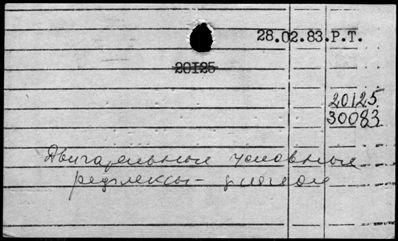 28.02.83.Р.Т.
20125
20125
30083
Двигательные условные
рефлексы-